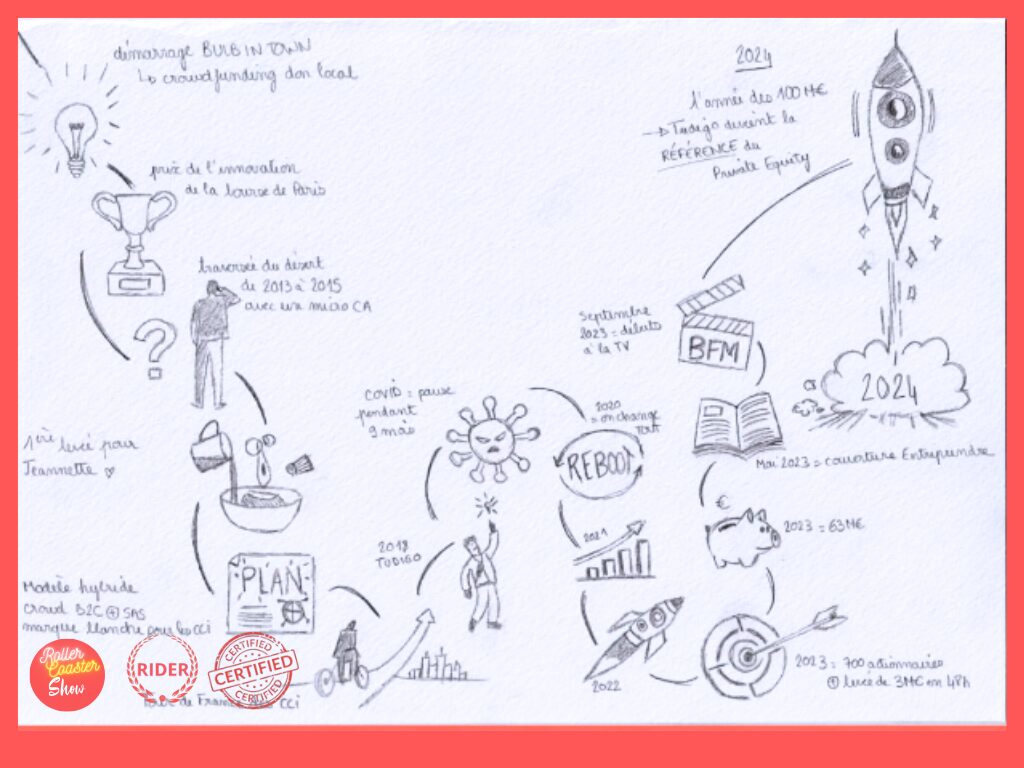 démarrage BULB IN TOWN
↳ crowdfunding don local
prix de l'innovation
de la bourse de Paris
traversée du désert
de 2013 à 2015
avec un micro CA
1ère levée pour
Jeannette ♡
PLAN
Modèle hybride
crowd B2C ⊕ SAS
marque blanche pour les CCI
Tour de France des CCI
2018
TUDIGO
COVID = pause
pendant
9 mois
2020
= on change
tout
REBOOT
2021
2022
2023 = 700 actionnaires
⊕ levée de 3M€ en 48h
€
2023 = 63M€
Mai 2023 = couverture Entreprendre
Septembre
2023 = débuts
à la TV
BFM
2024
l'année des 100M€
→ Tudigo devient la
RÉFÉRENCE du
Private Equity
2024
Roller
Coaster
Show
RIDER
CERTIFIED
CERTIFIED
CERTIFIED